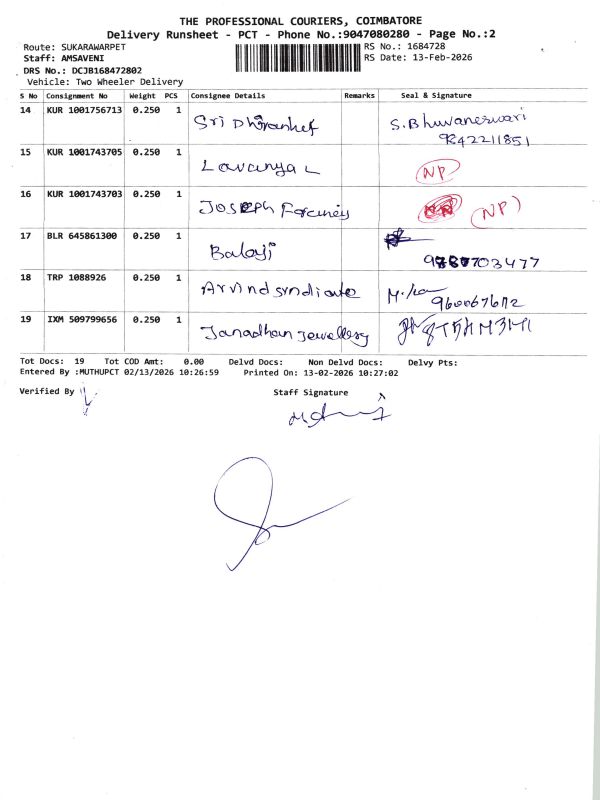 THE PROFESSIONAL COURIERS, COIMBATORE
Delivery Runsheet - PCT - Phone No.:9047080280 - Page No.:2
Route: SUKARAWARPET
Staff: AMSAVENI
DRS No.: DCJB168472802
Vehicle: Two Wheeler Delivery
RS No.: 1684728
RS Date: 13-Feb-2026
S No Consignment No Weight PCS Consignee Details Remarks Seal & Signature
14 KUR 1001756713 0.250 1 Sri S.Bhuvaneswari
9842211851
15 KUR 1001743705 0.250 1 Lavanya L (NP)
16 KUR 1001743703 0.250 1 Joseph (NP)
17 BLR 645861300 0.250 1 Balaji
18 TRP 1088926 0.250 1 Arvind
19 IXM 509799656 0.250 1 Janadhan Jewellery
Tot Docs: 19 Tot COD Amt: 0.00 Delvd Docs: Non Delvd Docs: Delvy Pts:
Entered By :MUTHUPCT 02/13/2026 10:26:59 Printed On: 13-02-2026 10:27:02
Verified By
Staff Signature